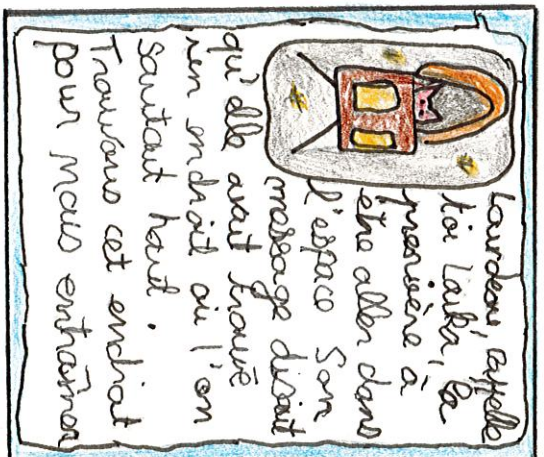 rappelle
toi Laika, la
première à
être aller dans
l'espace Son
message disait
qu'elle avait trouvé
un endroit où l'on
sautait haut.
Trouvons cet endroit
pour nous entraîner